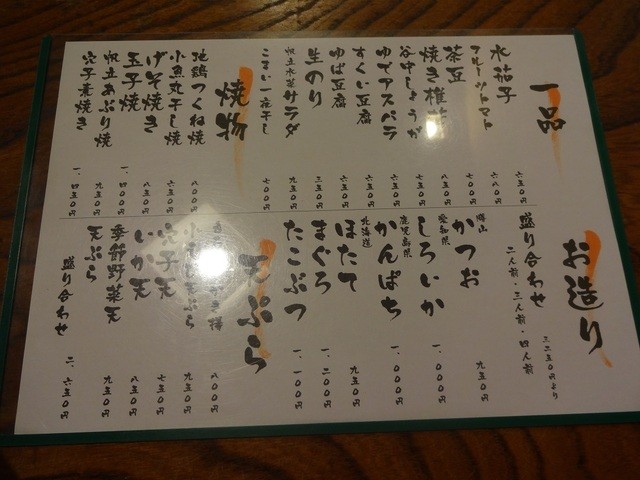 一品
水茄子 六五〇円
フルーツトマト 六八〇円
茶豆 七〇〇円
焼き椎茸 八五〇円
谷中しょうが 七五〇円
ゆでアスパラ 六五〇円
すくい豆腐 六五〇円
ゆば豆腐 六五〇円
生のり 三五〇円
帆立水菜サラダ 九五〇円
こまい一夜干し 七〇〇円
焼物
地鶏つくね焼 八〇〇円
小魚丸干し焼 六五〇円
げそ焼き 八五〇円
玉子焼 一、〇〇〇円
帆立あぶり焼 九五〇円
穴子素焼き 一、四五〇円
お造り
盛り合わせ 三二五〇円より
二人前・三人前・四人前
勝山
かつお 九五〇円
愛知県
しろいか 一、〇〇〇円
鹿児島県
かんぱち 一、〇〇〇円
北海道
ほたて 九五〇円
まぐろ 一、二〇〇円
たこぶつ 一、〇〇〇円
天ぷら
八〇〇円
天ぷら 九五〇円
穴子天 七五〇円
いか天 八五〇円
季節野菜天 九五〇円
天ぷら
盛り合わせ 二、六五〇円